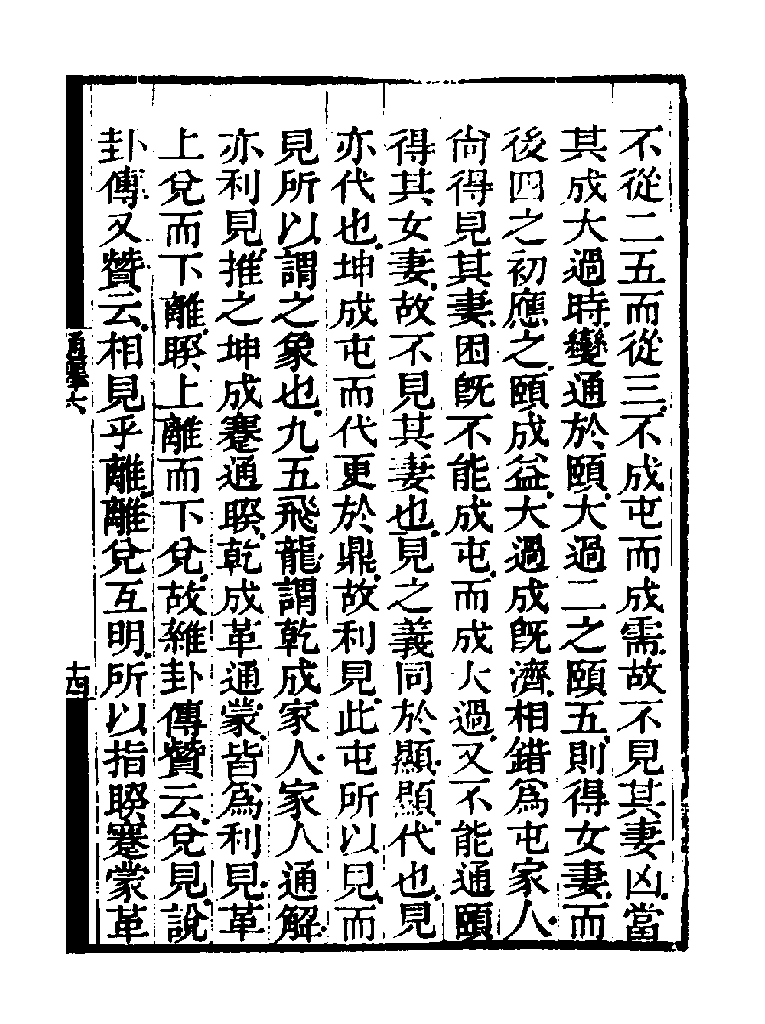 不從二五而從三不成屯而成需故不見其妻凶當
其成大過時變通於頤大過二之頤五則得女妻而
後四之初應之頤成益大過成旣濟相錯爲屯家人
尙得見其妻困旣不能成屯而成大過又不能通頤
得其女妻故不見其妻也見之義同於顯顯代也見
亦代也坤成屯而代更於鼎故利見此屯所以見而
見所以謂之象也九五飛龍謂乾成家人家人通解
亦利見推之坤成蹇通睽乾成革通蒙皆爲利見革
上兌而下離睽上離而下兌故雜卦傳贊云兌見說
卦傳又贊云相見乎離離兌互明所以指睽蹇蒙革
通釋六
十四